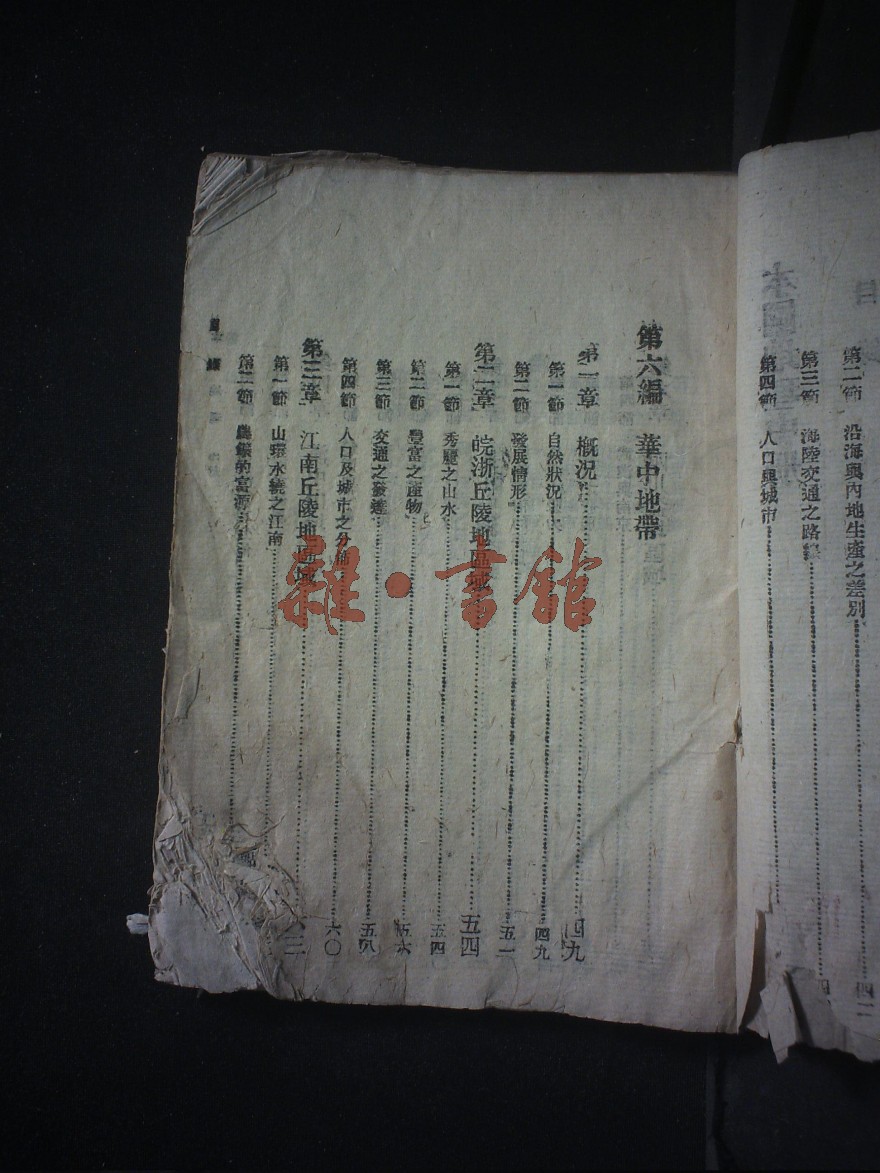 第二節 沿海與內地生產之差別 四二
第三節 海陸交通之路線
第四節 人口與城市
第六編 華中地帶
第一章 概況 四九
第一節 自然狀況 四九
第二節 發展情形 五一
第二章 皖浙丘陵地區域 五四
第一節 秀麗之山水 五四
第二節 豐富之產物 五六
第三節 交通之發達 五八
第四節 人口及城市之分佈 六〇
第三章 江南丘陵地區域
第一節 山環水繞之江南
第二節 農鑛的富源
目 錄
雜·書館